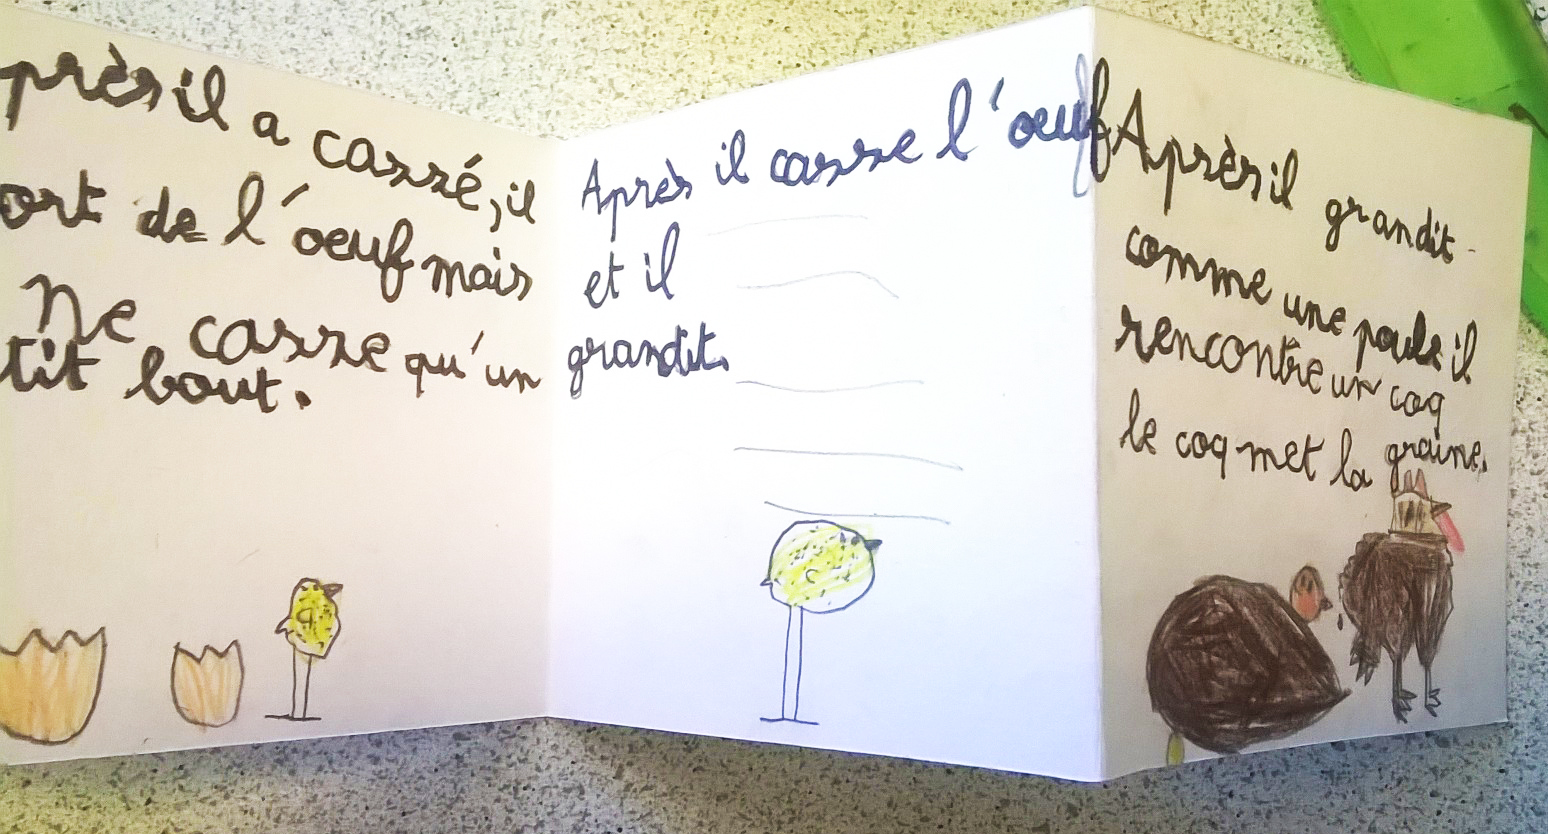 près il a cassé, il
ort de l'oeuf mais
Ne casse qu'un
tit bout.
Après il casse l'oeuf
et il
grandit.
Après il grandit
comme une poule il
rencontre un coq
le coq met la graine.